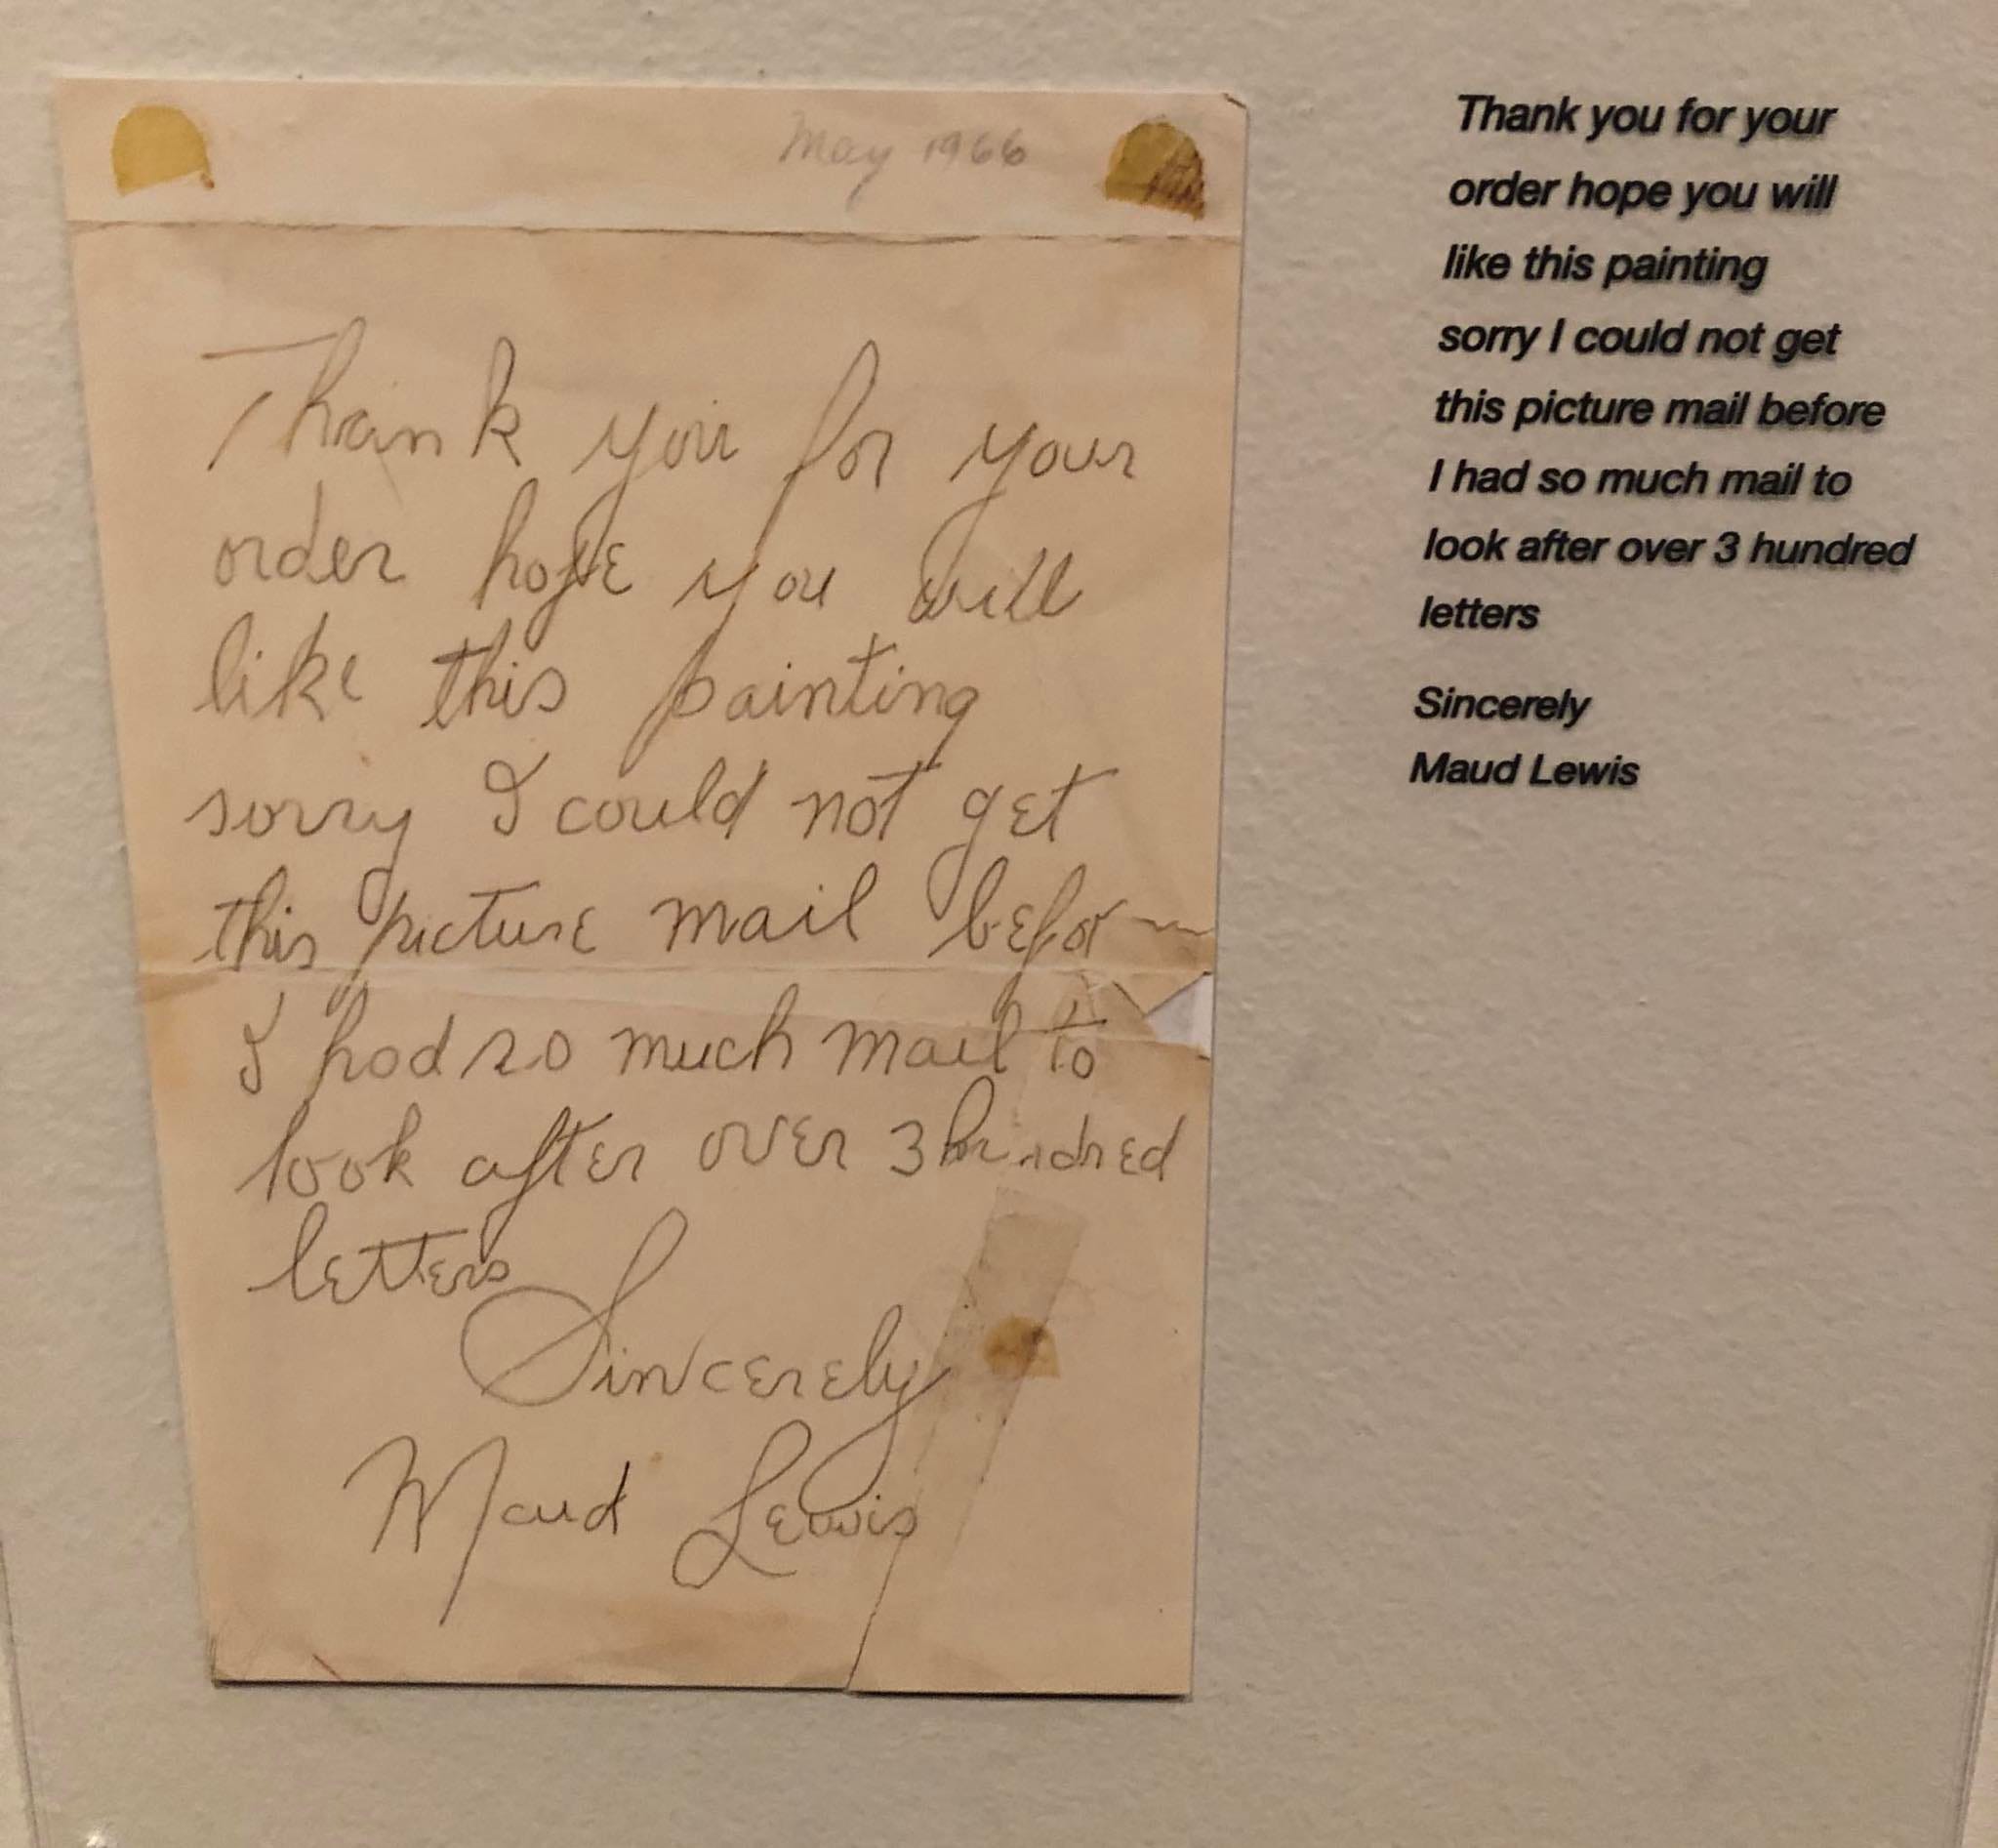 May 1966
Thank you for your
order hope you will
like this painting
sorry I could not get
this picture mail befor
I had so much mail to
look after over 3 hundred
letters
Sincerely
Maud Lewis
Thank you for your
order hope you will
like this painting
sorry I could not get
this picture mail before
I had so much mail to
look after over 3 hundred
letters
Sincerely
Maud Lewis